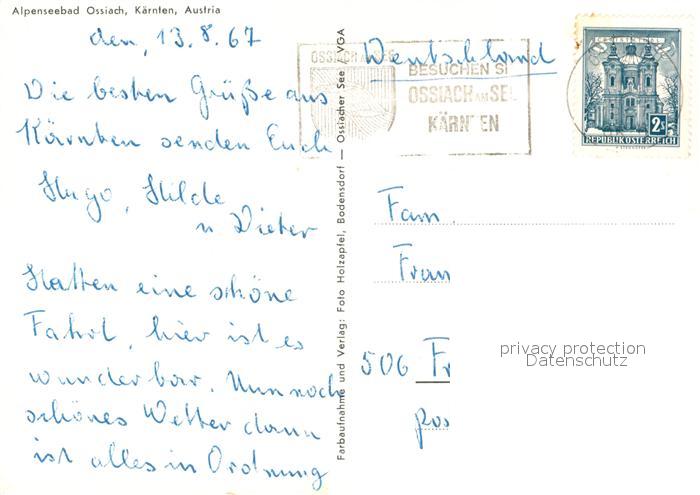 Alpenseebad Ossiach, Kärnten, Austria
den, 13.8.67
Die besten Grüße aus
Kärnten senden Euch
Hugo, Hilde
u Dieter
Hatten eine schöne
Fahrt, hier ist es
wunderbar. Nun noch
schönes Wetter dann
ist alles in Ordnung
Farbaufnahme und Verlag: Foto Holzapfel, Bodensdorf — Ossiacher See / VGA
Deutschland
OSSIACH AM SEE
BESUCHEN SI
OSSIACH AM SEE
KÄRNTEN
2S
REPUBLIK ÖSTERREICH
Fam.
Fran
506 Fr
pos
privacy protection
Datenschutz